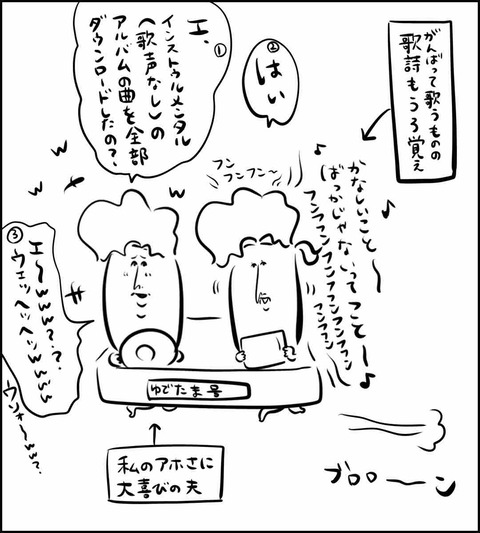 がんばって歌うものの
歌詩もうろ覚え
①
エ、
インストゥルメンタル
(歌声なし)の
アルバムの曲を全部
ダウンロードしたの?
②
はい
フン
フンフン〜
♪
かなしいこと〜♪
ばっかじゃないってこと〜♪
フンフフンフンフフンフンフン
フンフン
w
w
w
③
エ〜ww?.?
ウェッヘッヘッwwww
ウンォ〜ww?
ゆでたま号
私のアホさに
大喜びの夫
ブロローン